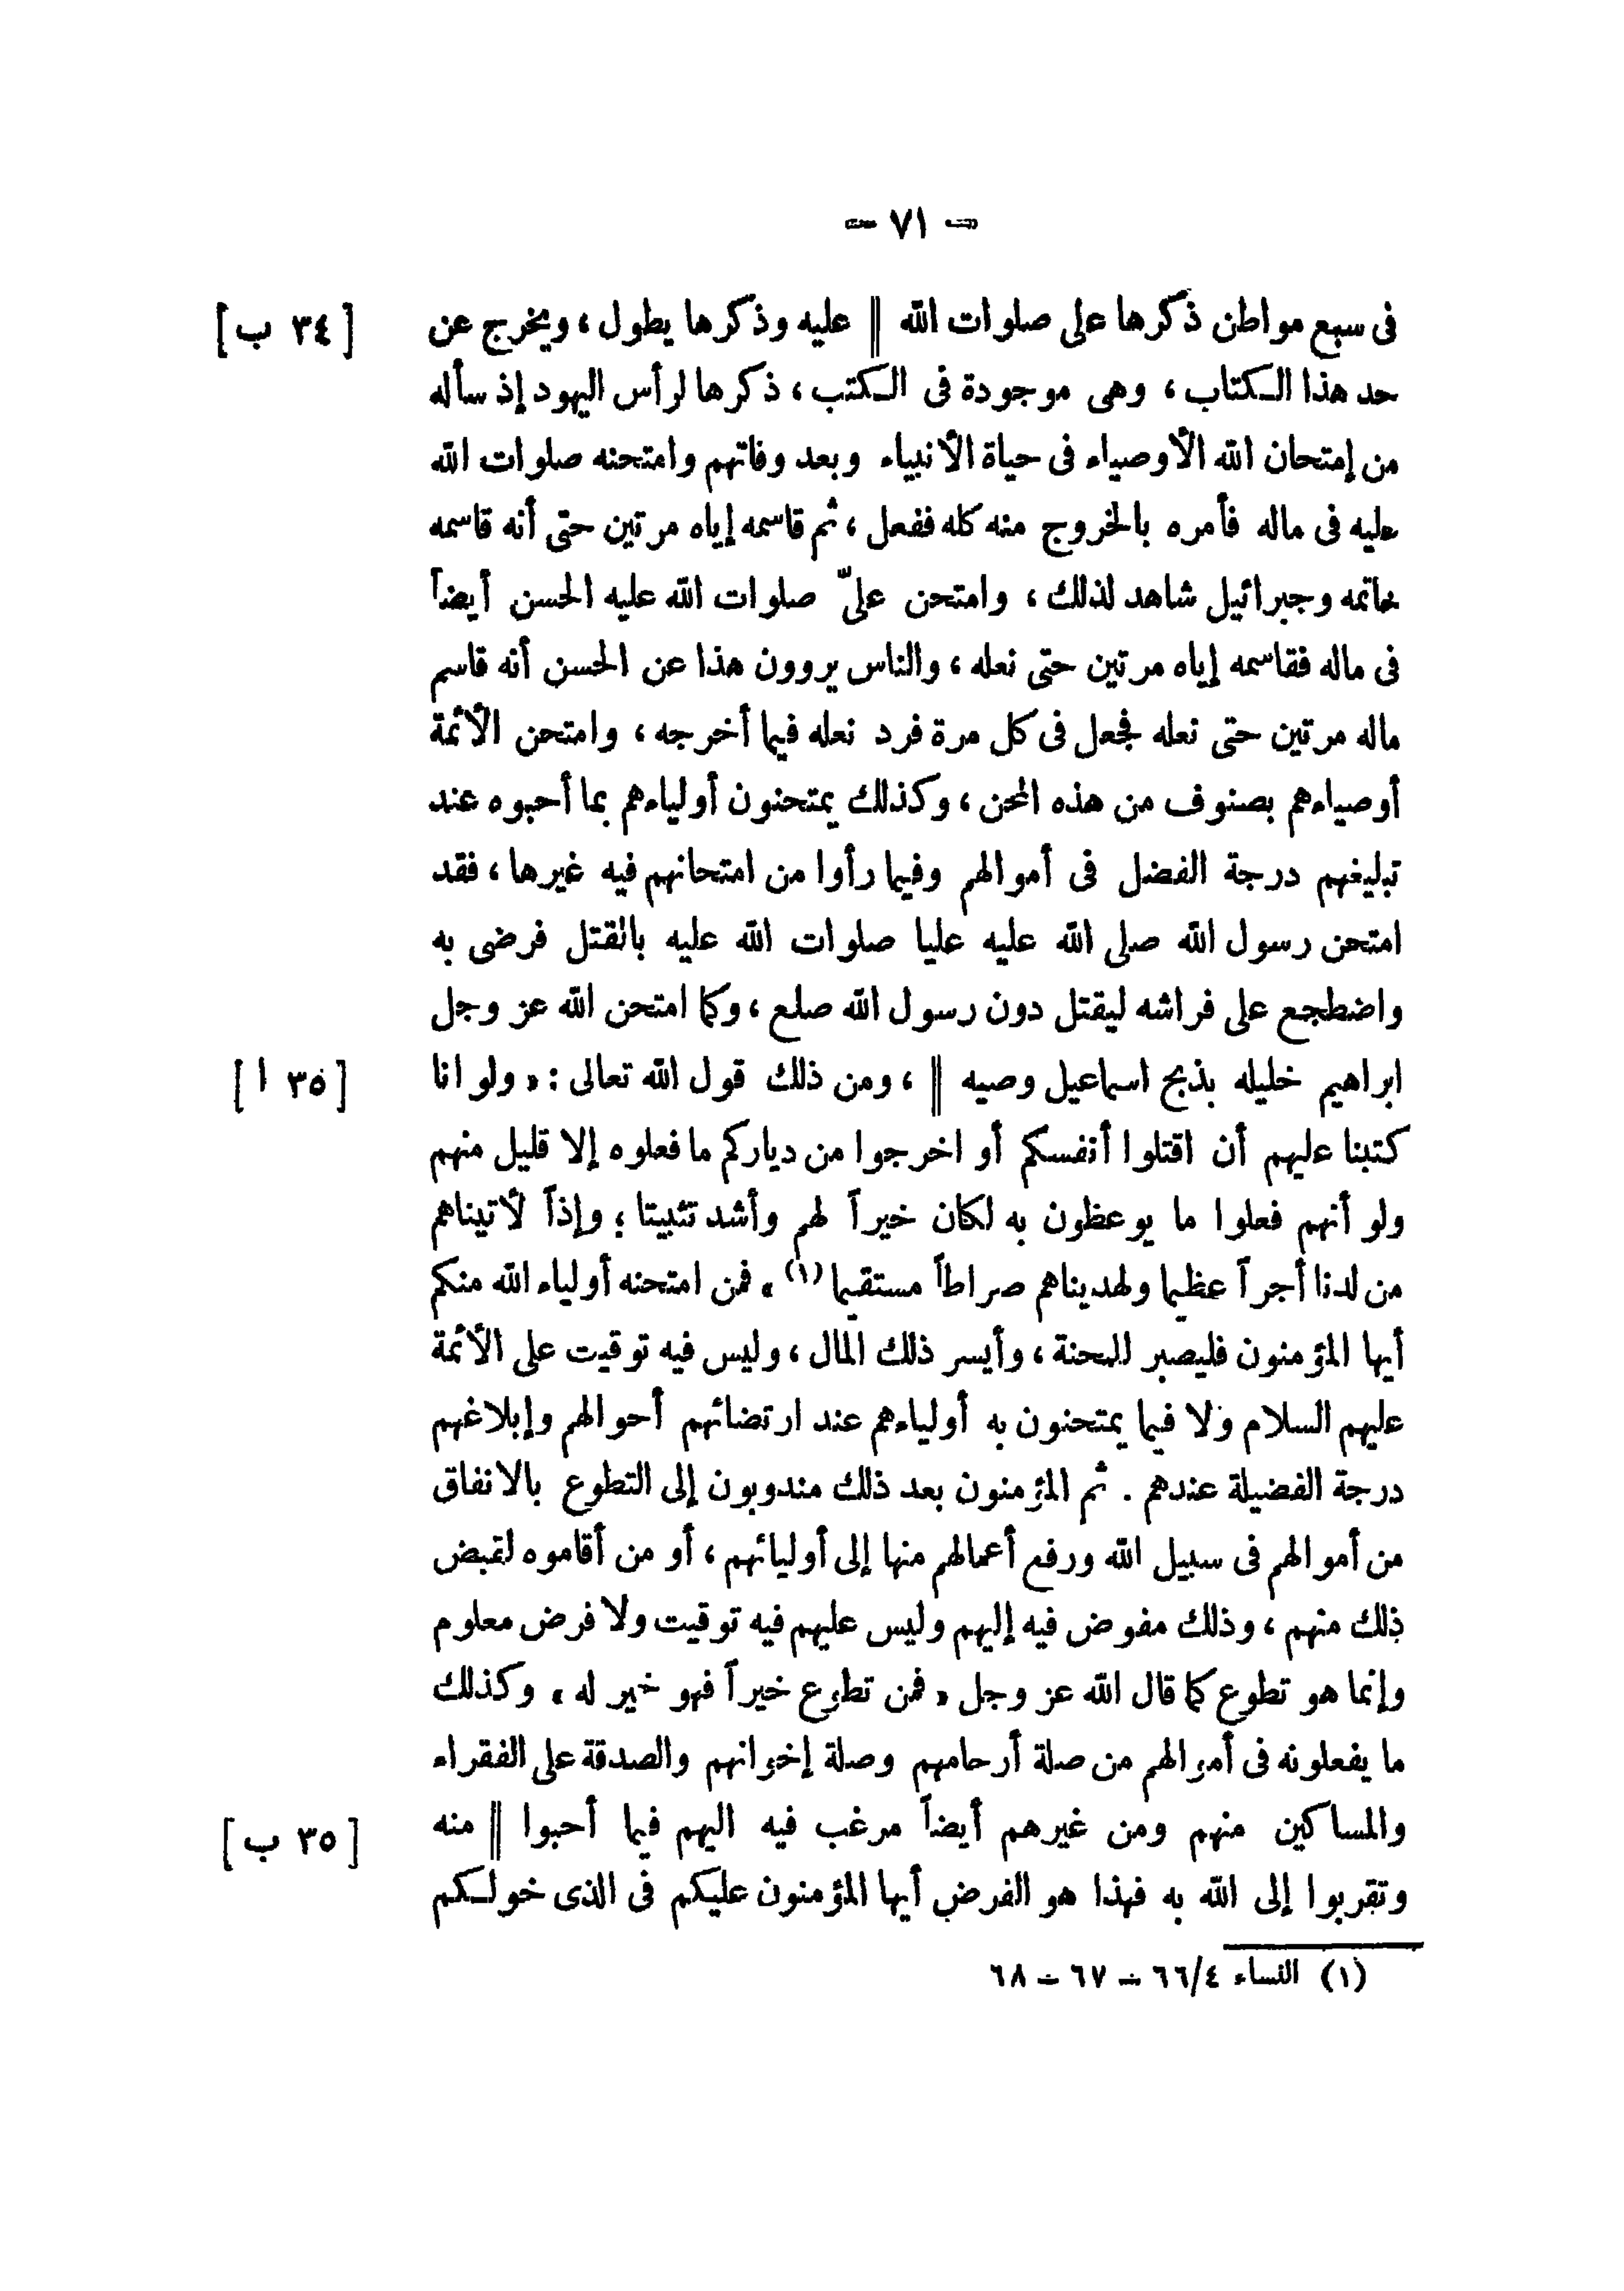 — ٧١ —
فى سبع مواطن ذكرها على صلوات الله || عليه وذكرها يطول ، ويخرج عن [ ٣٤ ب ]
حد هذا الكتاب ، وهى موجودة فى الكتب ، ذكرها لرأس اليهود إذ سأله
من إمتحان الله الأوصياء فى حياة الأنبياء وبعد وفاتهم وامتحنه صلوات الله
عليه فى ماله فأمره بالخروج منه كله ففعل ، ثم قاسمه إياه مرتين حتى أنه قاسمه
خاتمه وجبرائيل شاهد لذلك ، وامتحن علىّ صلوات الله عليه الحسن أيضاً
فى ماله فقاسمه إياه مرتين حتى نعله ، والناس يروون هذا عن الحسن أنه قاسم
ماله مرتين حتى نعله فجعل فى كل مرة فرد نعله فيما أخرجه ، وامتحن الأئمة
أوصياءهم بصنوف من هذه المحن ، وكذلك يمتحنون أولياءهم بما أحبوه عند
تبليغهم درجة الفضل فى أموالهم وفيما رأوا من امتحانهم فيه غيرها ، فقد
امتحن رسول الله صلى الله عليه عليا صلوات الله عليه بالقتل فرضى به
واضطجع على فراشه ليقتل دون رسول الله صلع ، وكما امتحن الله عز وجل
ابراهيم خليله بذبح اسماعيل وصيه || ، ومن ذلك قول الله تعالى : « ولو انا [ ٣٥ ا ]
كتبنا عليهم أن اقتلوا أنفسكم أو اخرجوا من دياركم ما فعلوه إلا قليل منهم
ولو أنهم فعلوا ما يوعظون به لكان خيراً لهم وأشد تثبيتا ؛ وإذاً لأتيناهم
من لدنا أجراً عظيما ولهديناهم صراطاً مستقيما (١) » فمن امتحنه أولياء الله منكم
أيها المؤمنون فليصبر للمحنة ، وأيسر ذلك المال ، وليس فيه توقيت على الأئمة
عليهم السلام ولا فيما يمتحنون به أولياءهم عند ارتضائهم أحوالهم وإبلاغهم
درجة الفضيلة عندهم . ثم المؤمنون بعد ذلك مندوبون إلى التطوع بالانفاق
من أموالهم فى سبيل الله ورفع أعمالهم منها إلى أوليائهم ، أو من أقاموه لقبض
ذلك منهم ، وذلك مفوض فيه إليهم وليس عليهم فيه توقيت ولا فرض معلوم
وإنما هو تطوع كما قال الله عز وجل « فمن تطوع خيراً فهو خير له » وكذلك
ما يفعلونه فى أموالهم من صلة أرحامهم وصلة إخوانهم والصدقة على الفقراء
والمساكين منهم ومن غيرهم أيضاً مرغب فيه اليهم فيما أحبوا || منه [ ٣٥ ب ]
وتقربوا إلى الله به فهذا هو الفرض أيها المؤمنون عليكم فى الذى خولكم
(١) النساء ٦٦/٤ — ٦٧ — ٦٨